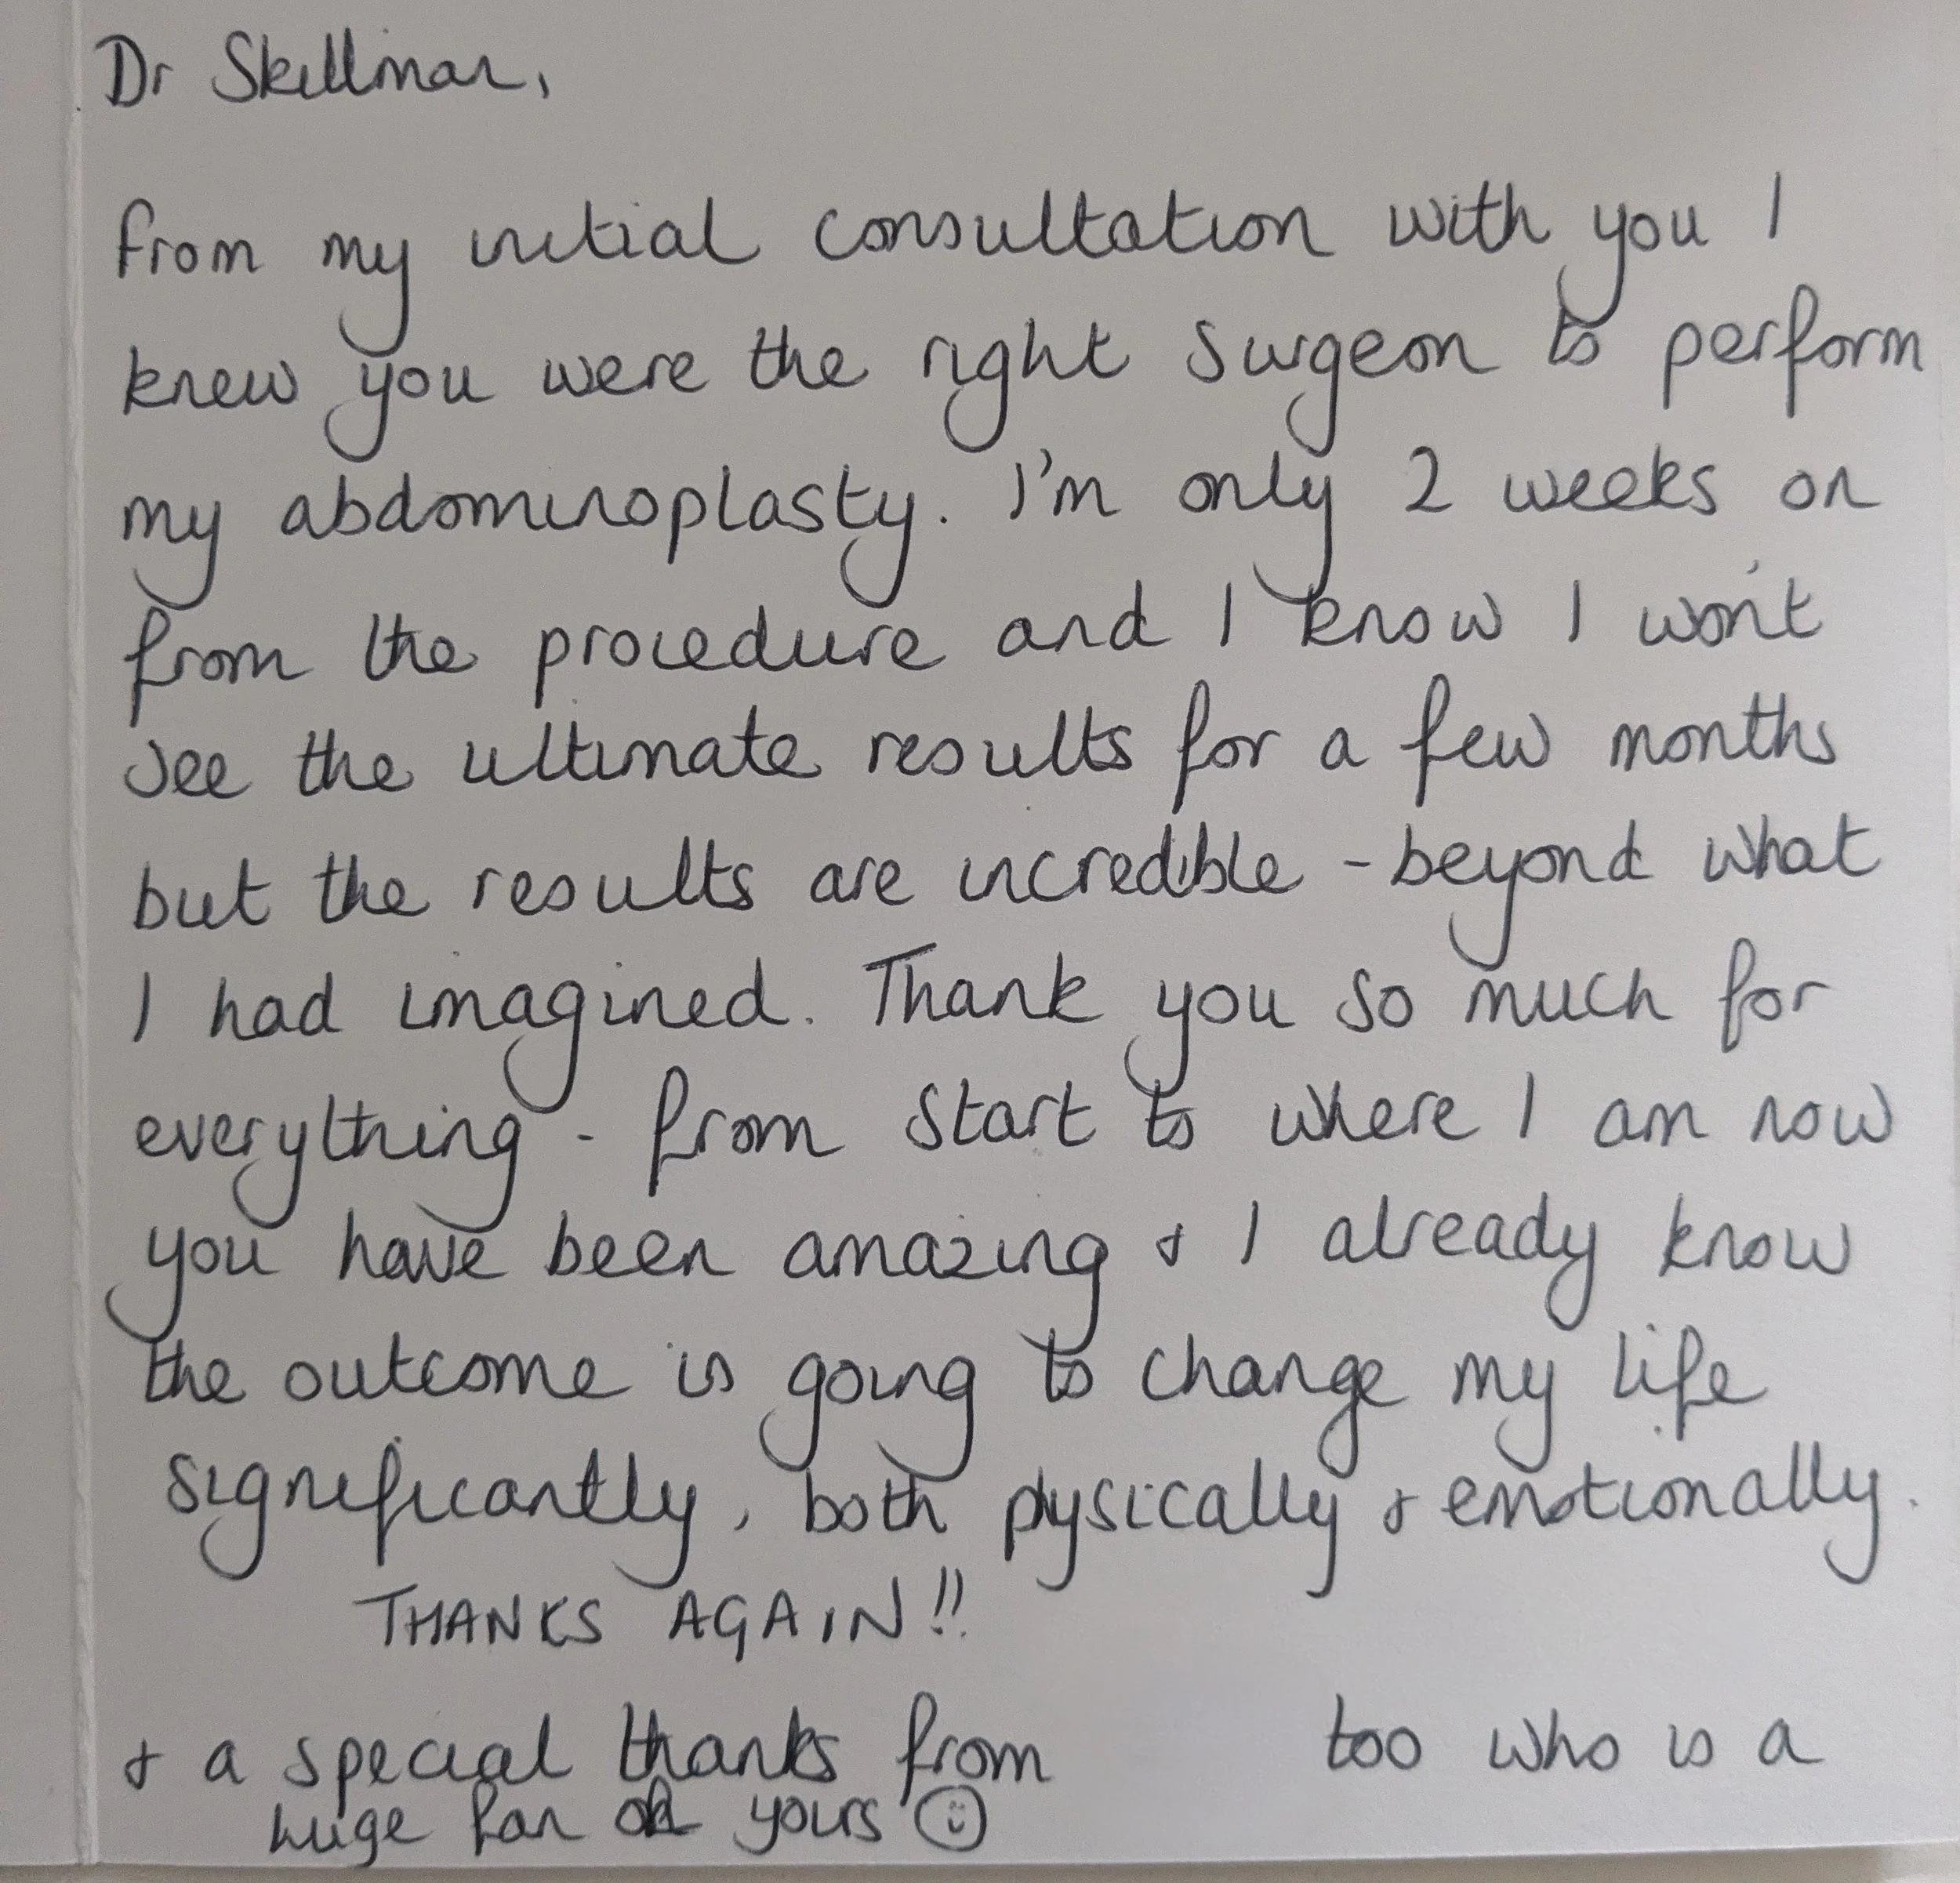 Dr Skillman,
From my initial consultation with you I
knew you were the right surgeon to perform
my abdominoplasty. I'm only 2 weeks on
from the procedure and I know I won't
see the ultimate results for a few months
but the results are incredible - beyond what
I had imagined. Thank you so much for
everything - from start to where I am now
you have been amazing & I already know
the outcome is going to change my life
significantly, both pysically & emotionally.
THANKS AGAIN!!
& a special thanks from too who is a
huge fan of yours ☺